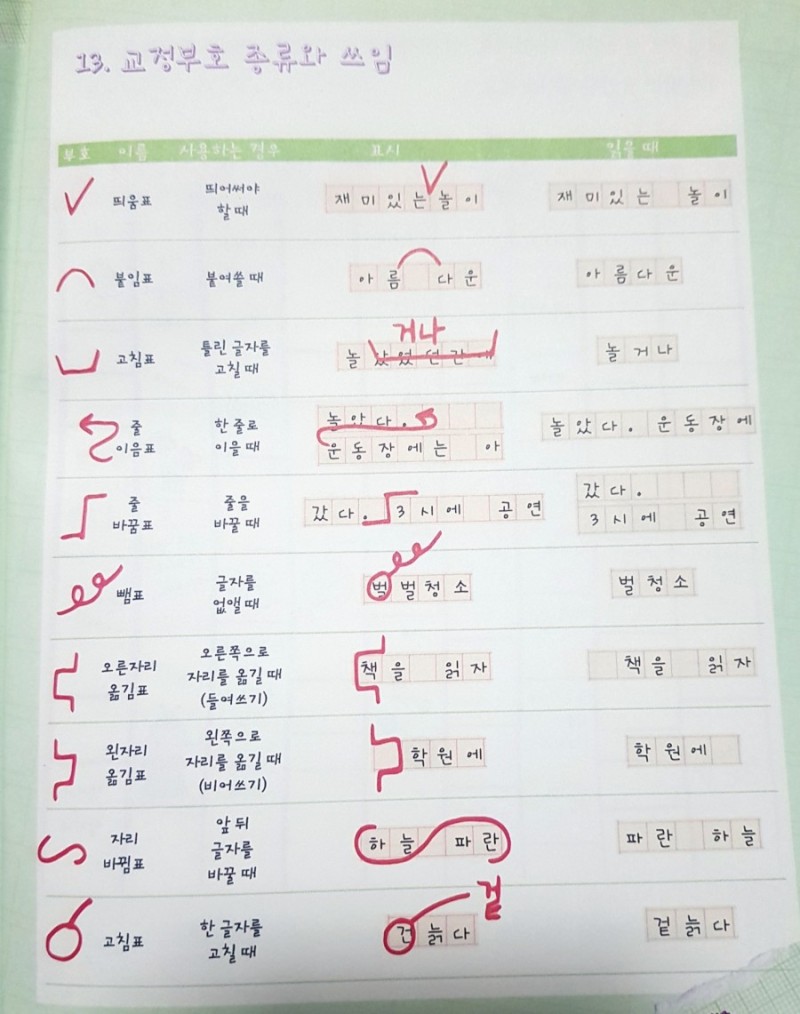 13. 교정부호 종류와 쓰임
부호 이름 사용하는 경우 표시 읽을 때
띄움표 띄어써야 할 때 재미있는놀이 재미있는 놀이
붙임표 붙여쓸 때 아름 다운 아름다운
거나
고침표 틀린 글자를 고칠 때 놀았었던간에 놀거나
줄 이음표 한 줄로 이을 때 놀았다. 놀았다. 운동장에
운동장에는 아
줄 바꿈표 줄을 바꿀 때 갔다. 3시에 공연 갔다.
3시에 공연
뺌표 글자를 없앨 때 벌청소
오른자리 옮김표 오른쪽으로 자리를 옮길 때 (들여쓰기) 책을 읽자 책을 읽자
왼자리 옮김표 왼쪽으로 자리를 옮길 때 (비어쓰기) 학원에 학원에
자리 바뀜표 앞 뒤 글자를 바꿀 때 하늘 파란 파란 하늘
겉
고침표 한 글자를 고칠 때 건늙다 겉늙다